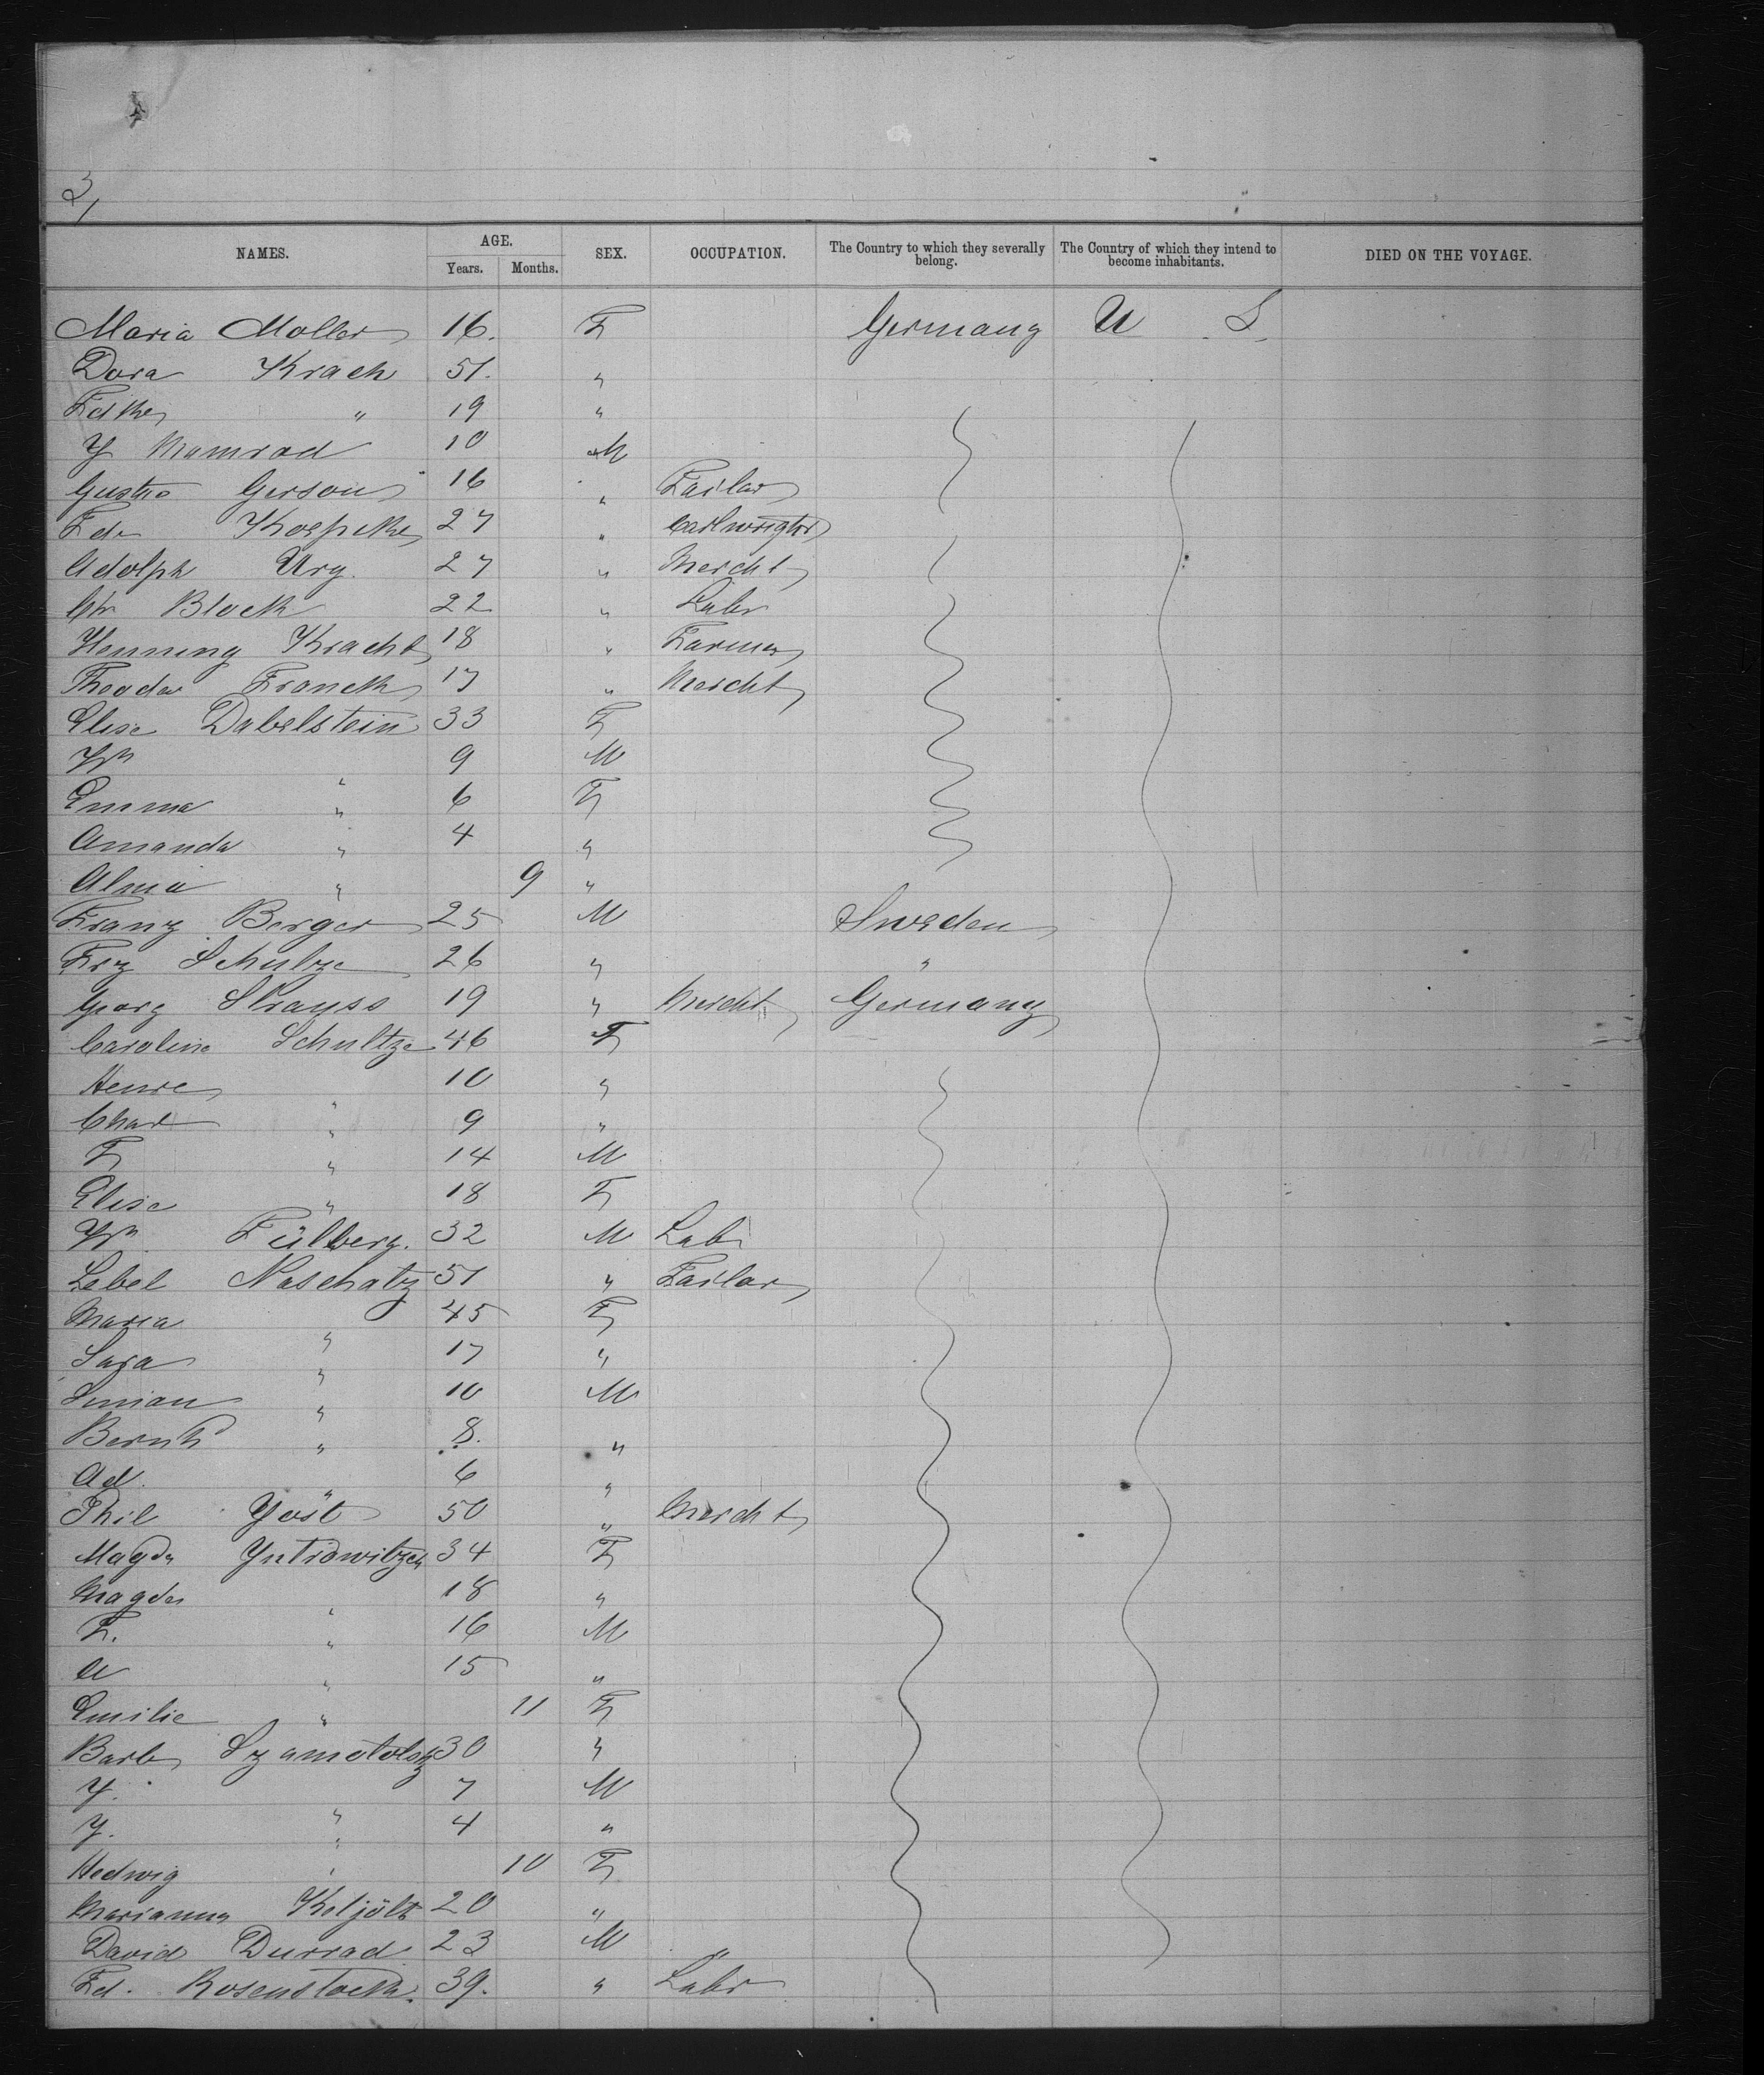 3/
NAMES. AGE. SEX. OCCUPATION. The Country to which they severally belong. The Country of which they intend to become inhabitants. DIED ON THE VOYAGE.
Years. Months.
Maria Moller 16. F Germany U S.
Dora Krach 51. "
" 19 "
Y Mamrad 10 M
Gerson 16 " Tailor
Koepcke 27 "
Adolph Ury 27 " Mercht
Chr Block 22 " Labr
Henning Kracht 18 " Farmer
Theodor Franck 17 " Mercht
Elise Dabelstein 33 F
Wm " 9 M
Emma " 6 F
Amanda " 4 "
Alma " 9 "
Franz Berger 25 M Sweden
Frz Schulze 26 " "
Georg Strauss 19 " Mercht Germany
Caroline Schultze 46 F
" 10 "
" 9 "
F " 14 M
Elise " 18 F
Wm Fülberg. 32 M Lab
Lebel Naschatz 51 " Tailor
Maria " 45 F
Sara " 17 "
" 10 M
Bernh " 8. "
Ad. " 6 "
Phil Yost 50 " Mercht
Magda 34 F
Magda " 18 "
F. " 16 M
" 15 "
Emilie " 11 F
Barb 30 "
Y. " 7 M
Y. " 4 "
Hedwig " 10 F
Marianna 20 "
David Durrad 23 M "
Ed. Rosenstock. 39. " Labr